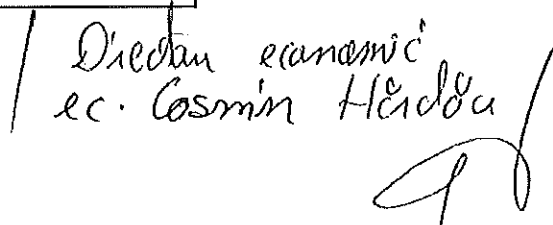 Director economic
ec. Cosmin Hărdău